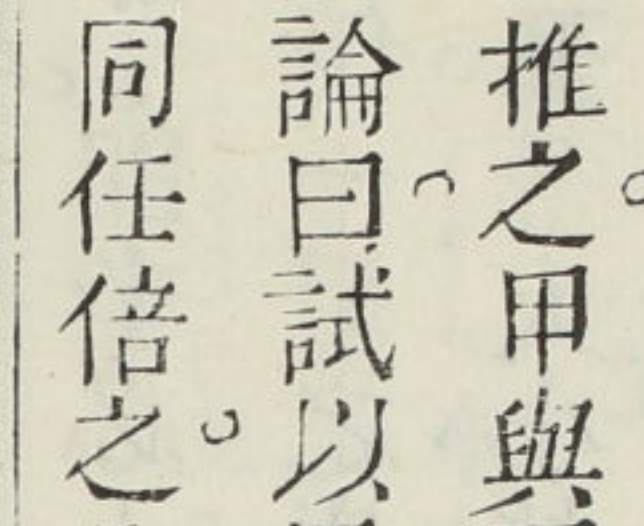 推之甲與
論曰試以
同任倍之